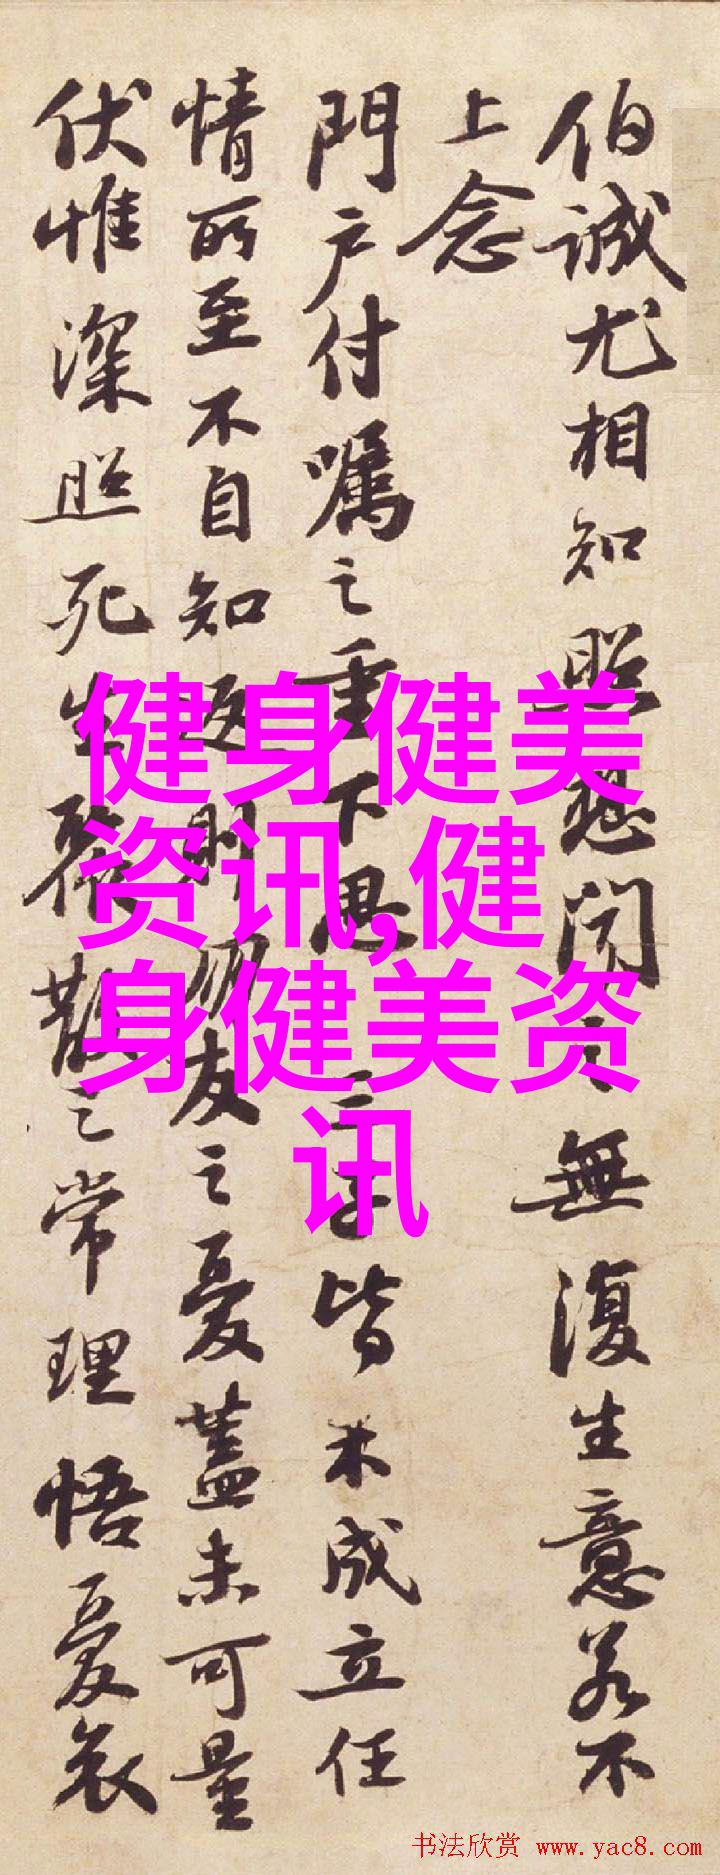 伯誠尤相知照想聞之無復生意若不
上念
門户付囑之重下思三子皆未成立任
情所至不自知返則朋友之憂蓋未可量
伏惟深照死生聚散之常理悟憂哀
健身健美
资讯,健
身健美资
讯
书法欣赏 www.yac8.com